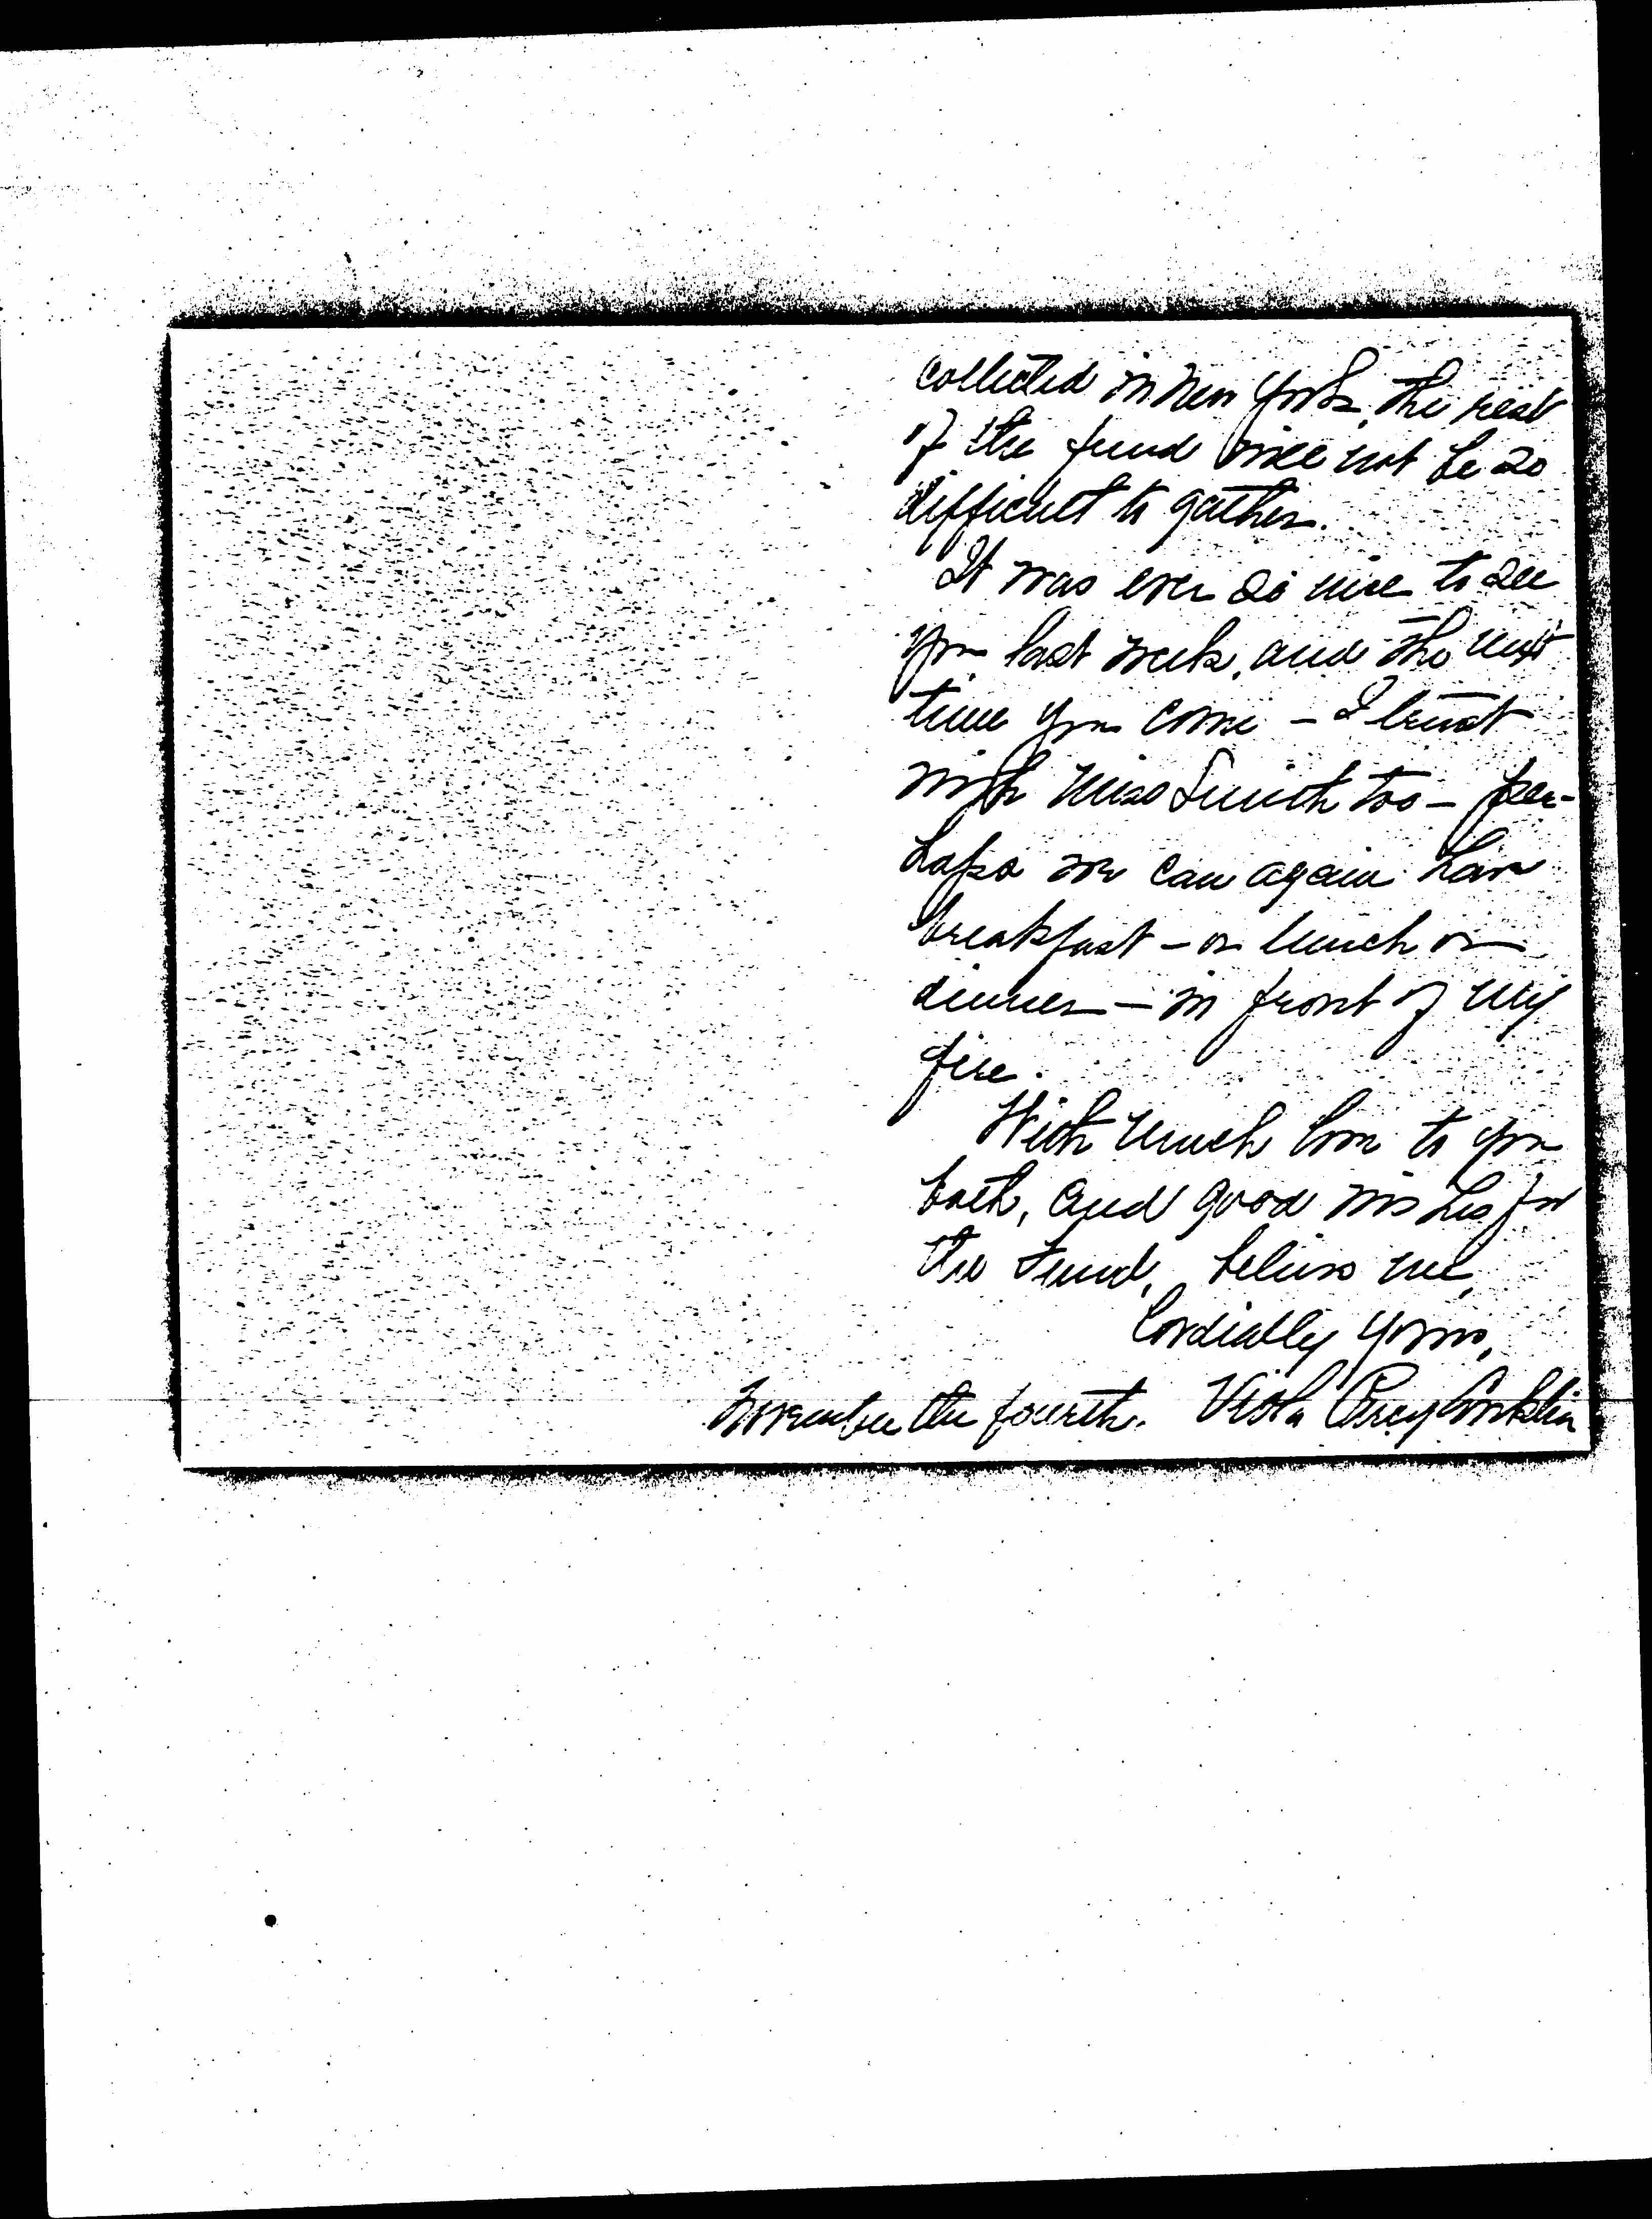 collected in New York, the rest
of the fund will not be so
difficult to gather.
It was ever so nice to see
you last week, and the next
time you come – I trust
with Miss Smith too – per-
haps we can again have
breakfast – or lunch or
dinner – in front of my
fire.
With much love to you
both, and good wishes for
the Fund, believe me,
Cordially yours,
November the fourth. Viola Conklin